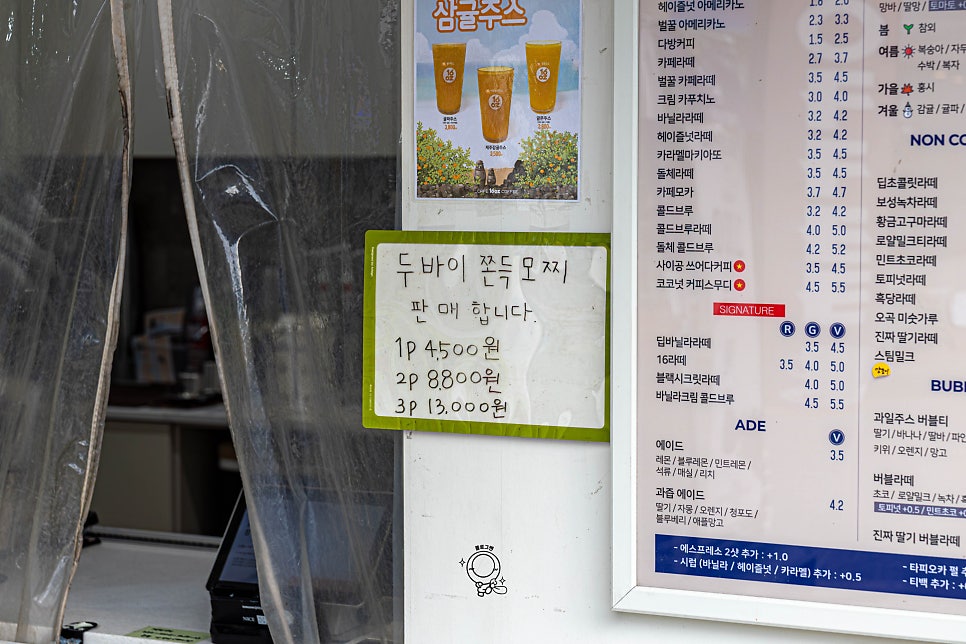 삼귤주스
16 OZ
16 OZ
16 OZ
CAFE 16oz COFFEE
두바이 쫀득모찌
판매합니다.
1p 4,500원
2p 8,800원
3p 13,000원
블로그팬
NICE
헤이즐넛 아메리카노 1.8 2.6
벌꿀 아메리카노 2.3 3.3
다방커피 1.5 2.5
카페라떼 2.7 3.7
벌꿀 카페라떼 3.5 4.5
크림 카푸치노 3.0 4.0
바닐라라떼 3.2 4.2
헤이즐넛라떼 3.2 4.2
카라멜마키아또 3.5 4.5
돌체라떼 3.5 4.5
카페모카 3.7 4.7
콜드브루 3.2 4.2
콜드브루라떼 4.0 5.0
돌체 콜드브루 4.2 5.2
사이공 쓰어다커피 3.5 4.5
코코넛 커피스무디 4.5 5.5
SIGNATURE
R G V
딥바닐라라떼 3.5 4.5
16라떼 3.5 4.0 5.0
블랙시크릿라떼 4.0 5.0
바닐라크림 콜드브루 4.5 5.5
ADE
V
에이드 3.5
레몬 / 블루레몬 / 민트레몬 /
석류 / 매실 / 리치
과즙 에이드 4.2
딸기 / 자몽 / 오렌지 / 청포도 /
블루베리 / 애플망고
- 에스프레소 2샷 추가 : +1.0
- 시럽 (바닐라 / 헤이즐넛 / 카라멜) 추가 : +0.5
- 타피오카 펄 추
- 티백 추가 : +
망바 / 딸망 / 토마토
봄 참외
여름 복숭아 / 자두
수박 / 복자
가을 홍시
겨울 감귤 / 귤파 /
NON CO
딥초콜릿라떼
보성녹차라떼
황금고구마라떼
로얄밀크티라떼
민트초코라떼
토피넛라떼
흑당라떼
오곡 미숫가루
진짜 딸기라떼
스팀밀크
BUBB
과일주스 버블티
딸기 / 바나나 / 딸바 / 파인
키위 / 오렌지 / 망고
버블라떼
초코 / 로얄밀크 / 녹차 /
토피넛 +0.5 / 민트초코
진짜 딸기 버블라떼